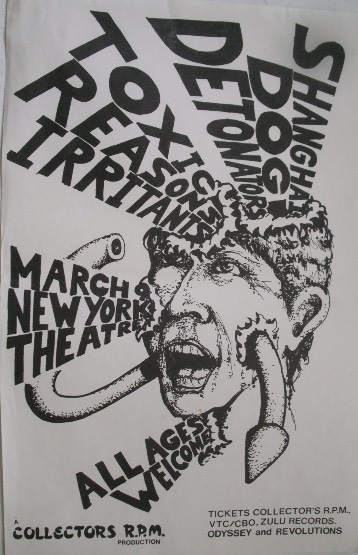 TOXIC
REASONS
IRRITANTS
DETONATORS
SHANGHAI
DOG
MARCH 9
NEW YORK
THEATRE
ALL AGES
WELCOME!
A
COLLECTORS R.P.M.
PRODUCTION
TICKETS COLLECTOR'S R.P.M.,
VTC/CBO, ZULU RECORDS,
ODYSSEY and REVOLUTIONS